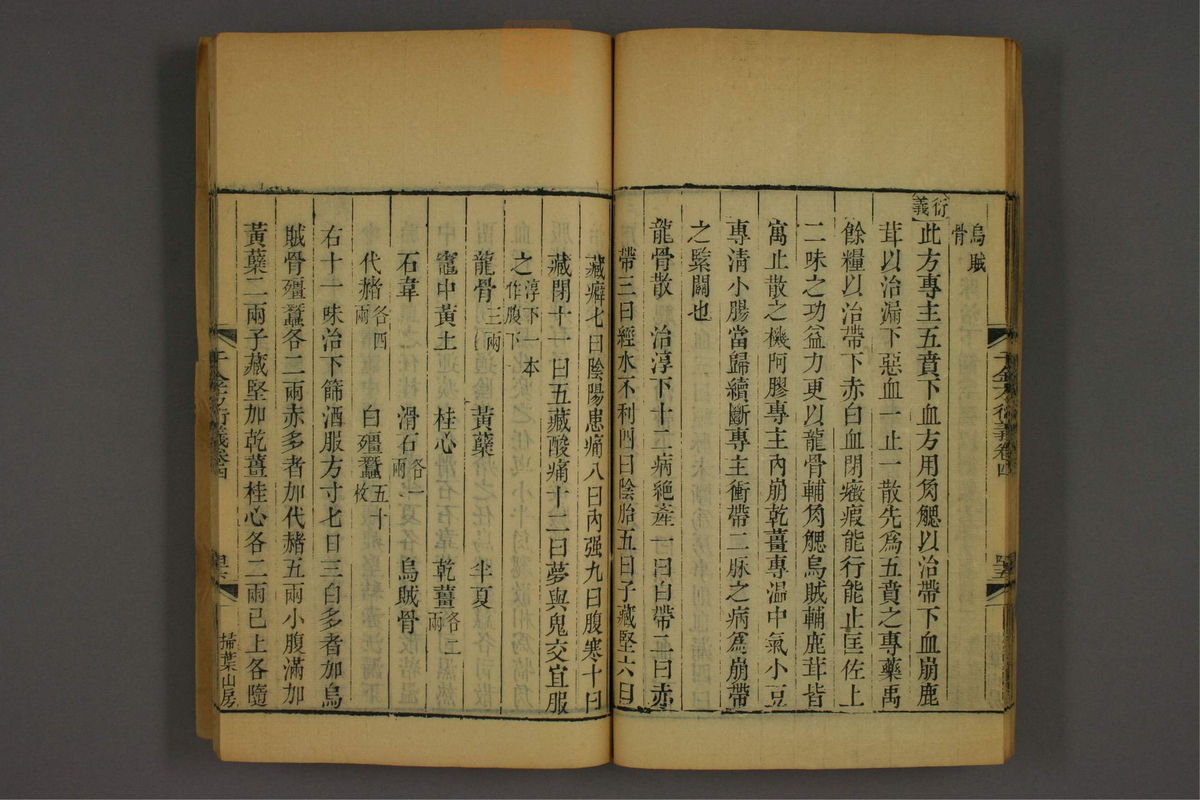 烏賊
骨
衍義 此方專主五賁下血方用𧢲䚡以治帶下血崩鹿
茸以治漏下惡血一止一散先爲五賁之專藥禹
餘糧以治帶下赤白血閉癥瘕能行能止匡佐上
二味之功益力更以龍骨輔𧢲䚡烏賊輔鹿茸皆
寓止散之機阿膠專主內崩乾薑專温中氣小豆
專清小腸當歸續斷專主衝帶二脈之病爲崩帶
之繄關也
龍骨散 治淳下十二病絶產一曰白帶二曰赤
帶三曰經水不利四曰陰胎五曰子藏堅六曰
藏癖七曰陰陽患痛八曰內强九曰腹寒十曰
藏閉十一曰五藏酸痛十二曰夢與鬼交宜服
之淳下一本作腹下
龍骨三兩 黃蘗 半夏
竈中黃土 桂心 乾薑各二兩
石韋 滑石各一兩 烏賊骨
代赭各四兩 白殭蠶五十枚
右十一味治下篩酒服方寸匕日三白多者加烏
賊骨殭蠶各二兩赤多者加代赭五兩小腹滿加
黃蘗二兩子藏堅加乾薑桂心各二兩已上各隨
千金方衍義卷四
掃葉山房